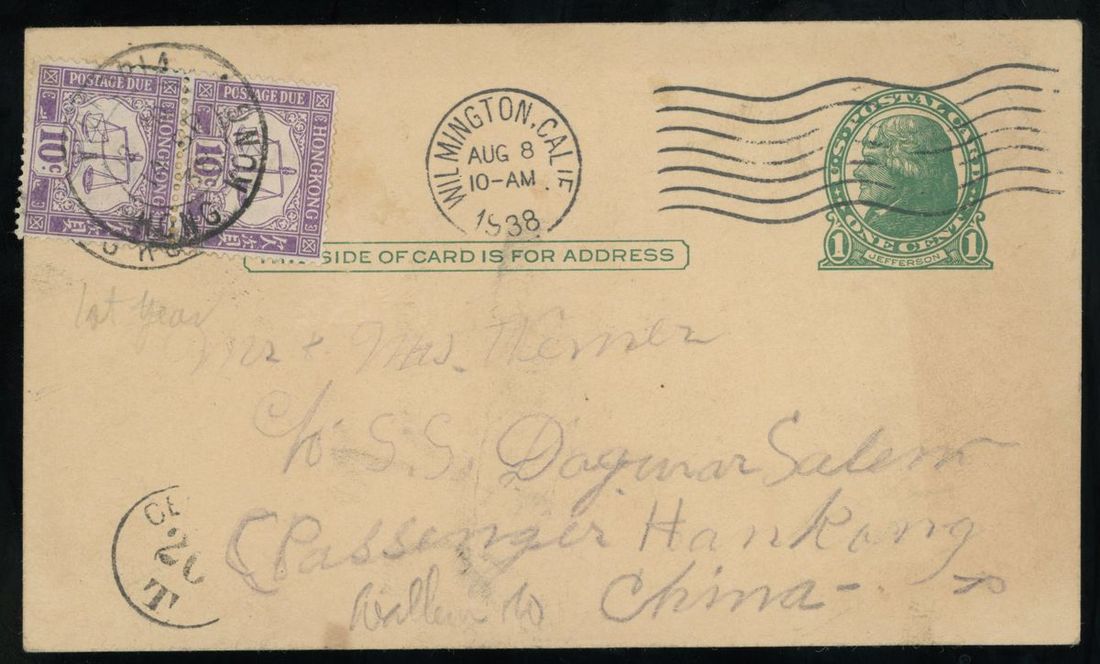 POSTAGE DUE
HONGKONG
10¢
POSTAGE DUE
HONGKONG
10¢
欠資
VICTORIA
HONG KONG
WILMINGTON, CALIF.
AUG 8
10-AM
1938
U.S. POSTAL CARD
ONE CENT
1 1
JEFFERSON
SIDE OF CARD IS FOR ADDRESS
1st Year
Mr + Mrs.
c/o S.S. Dagmar Salem
(Passenger Hankong
China
CE
20
T